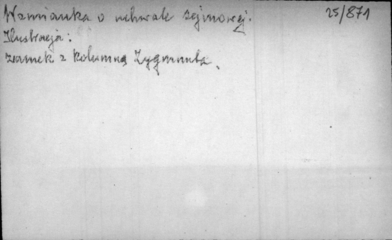 Wzmianka o uchwale sejmowej. 25/871
Ilustracja:
zamek z kolumną Zygmunta.